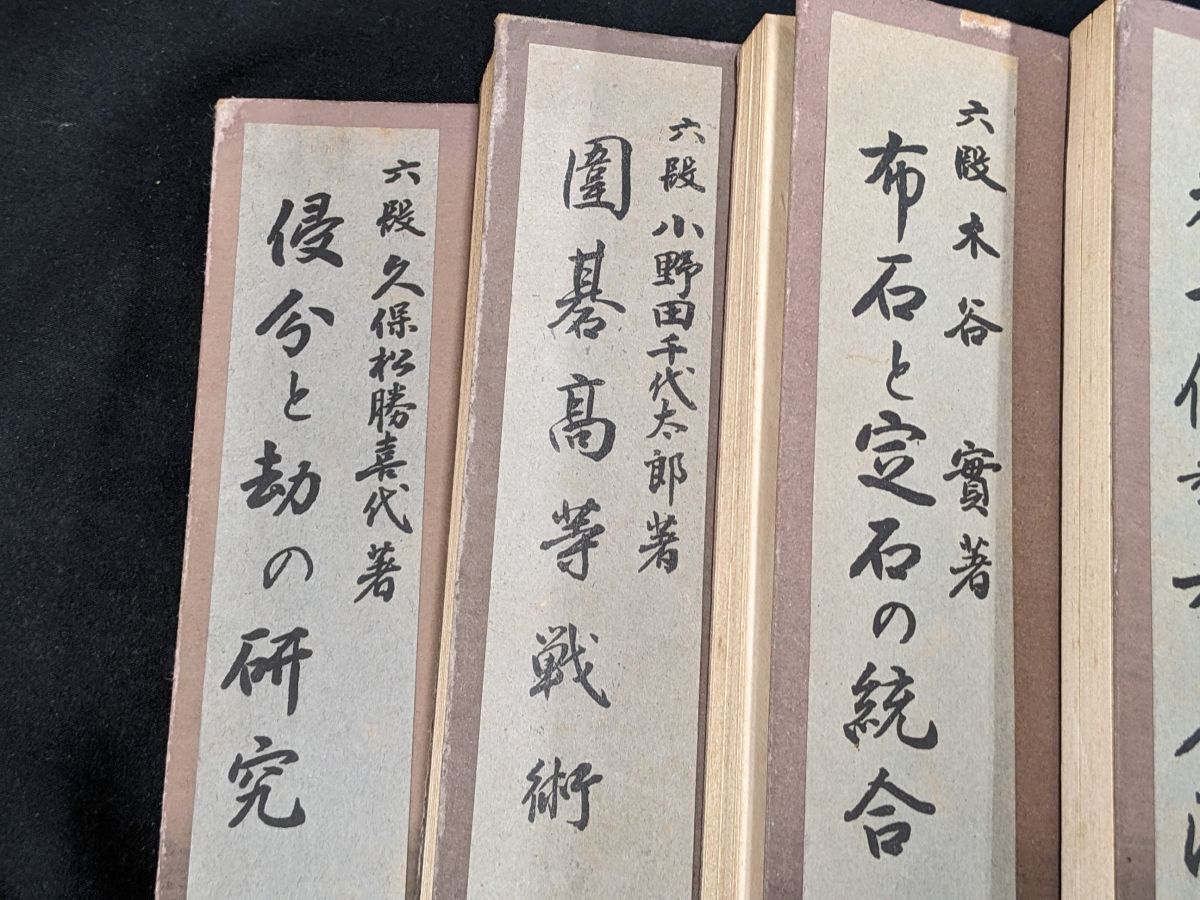 六段 木谷 實 著
布石と定石の統合
六段 小野田千代太郎 著
圍碁高等戦術
六段 久保松勝喜代 著
侵分と劫の研究